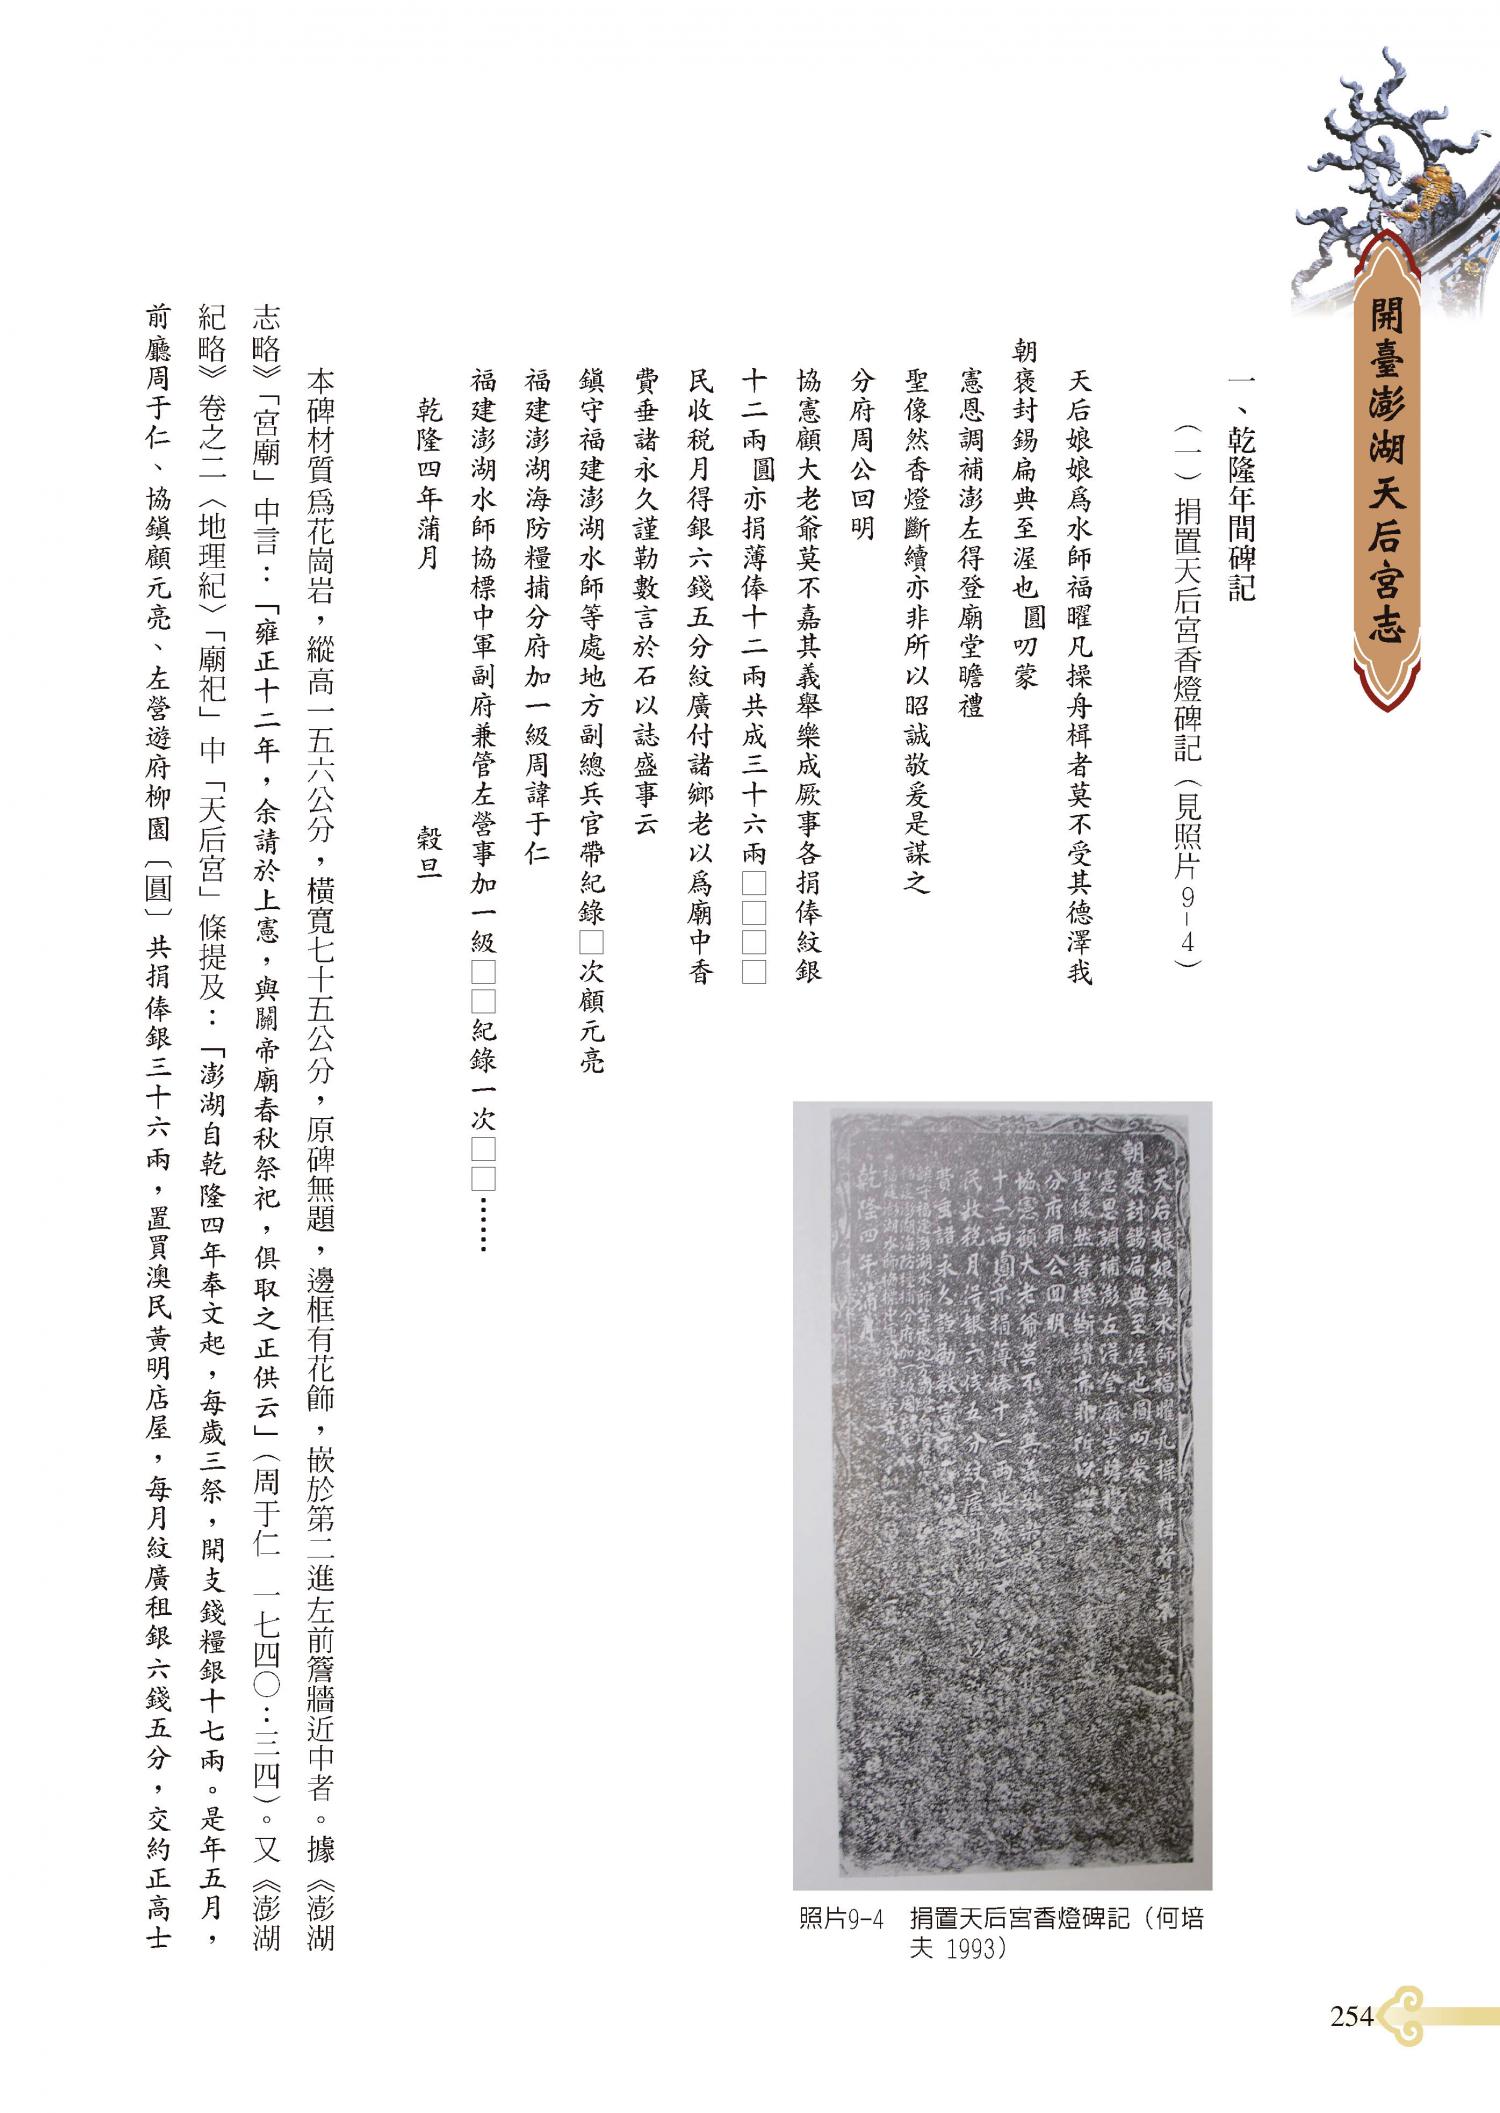 開臺澎湖天后宮志
一、乾隆年間碑記
（一）捐置天后宮香燈碑記（見照片9-4）
天后娘娘爲水師福曜凡操舟楫者莫不受其德澤我
朝褒封錫扁典至渥也 圓叨蒙
憲恩調補澎左得登廟堂瞻禮
聖像然香燈斷續亦非所以昭誠敬爰是謀之
分府周公回明
協憲顧大老爺莫不嘉其義舉樂成厥事各捐俸紋銀
十二兩 圓亦捐薄俸十二兩共成三十六兩□□□□
民收税月得銀六錢五分紋廣付諸鄉老以爲廟中香
費垂諸永久謹勒數言於石以誌盛事云
鎮守福建澎湖水師等處地方副總兵官帶紀錄□次顧元亮
福建澎湖海防糧捕分府加一級周諱于仁
福建澎湖水師協標中軍副府兼管左營事加一級□□紀錄一次□□……
乾隆四年蒲月 穀旦
本碑材質爲花崗岩，縱高一五六公分，橫寬七十五公分，原碑無題，邊框有花飾，嵌於第二進左前簷牆近中者。據《澎湖
志略》「宮廟」中言：「雍正十二年，余請於上憲，與關帝廟春秋祭祀，俱取之正供云」（周于仁 一七四〇：三四）。又《澎湖
紀略》卷之二〈地理紀〉「廟祀」中「天后宮」條提及：「澎湖自乾隆四年奉文起，每歲三祭，開支錢糧銀十七兩。是年五月，
前廳周于仁、協鎮顧元亮、左營遊府柳園〔圓〕共捐俸銀三十六兩，置買澳民黃明店屋，每月紋廣租銀六錢五分，交約正高士
照片9-4 捐置天后宮香燈碑記（何培
夫 1993）
254